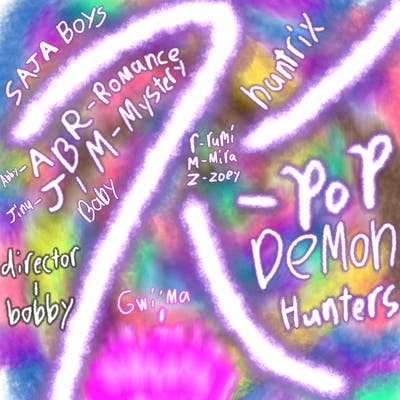 SAJA BOYS
huntrix
R-Romance
M-Mystery
Abby-A
B
Jinu-J
Baby
r-rumi
M-Mira
Z-zoey
K-PoP
DeMoN
Hunters
director
bobby
Gwi'Ma